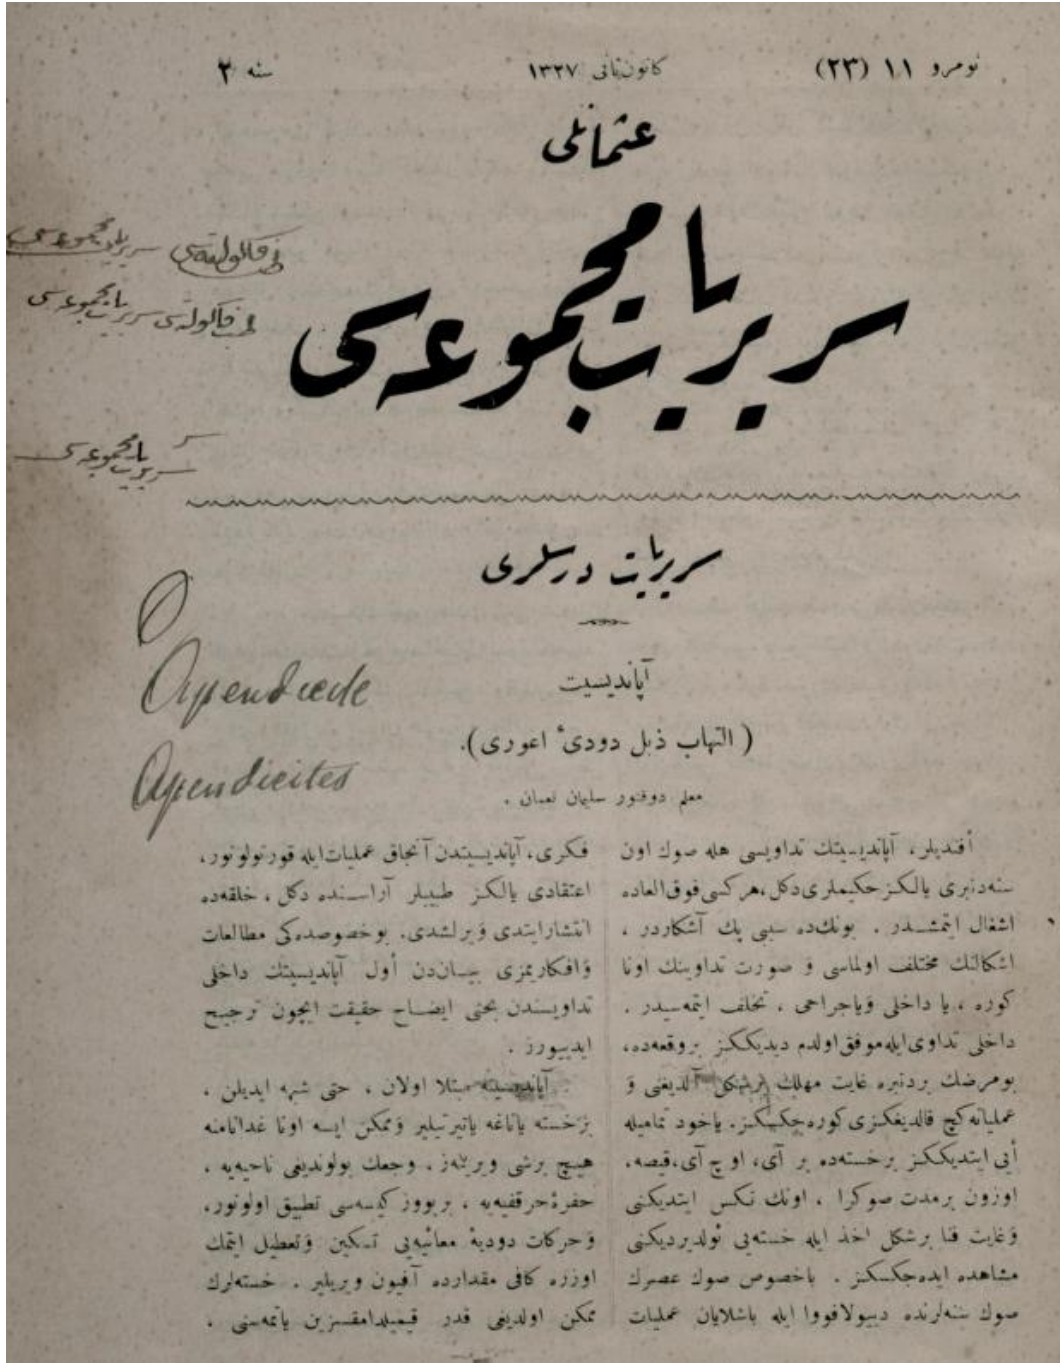 نومرو ١١ (٢٣)
كانون ثانی ١٣٢٧
سنه ٢
عثمانلی
سریریات مجموعه‌سی
طب فاكولته‌سی سریریات مجموعه‌سی
طب فاكولته‌سی سریریات مجموعه‌سی
سریریات مجموعه‌سی
سریریات درسلری
Apendicede
Apendicites
آپاندیسیت
( التهاب ذیل دودیٔ اعوری ).
معلم دوقتور سلیمان نعمان .
أفندیلر، آپاندیسیتك تداویسی هله صوك اون
سنه‌دنبری یالكز حكیملری دكل، هر كسی فوق العاده
اشغال ایتمشدر . بونك‌ده سببی پك آشكاردر ،
اشكالنك مختلف اولماسی و صورت تداوینك اونا
كوره ، یا داخلی ویاجراحی ، تخلف ایتمه‌سیدر .
داخلی تداوی ایله موفق اولدم دیدیككز بروقعه‌ده،
بومرضك بردنبره غایت مهلك برشكل آلدیغنی و
عملیاته كیچ قالدیغكزی كوره‌جكسكز. یاخود تمامیله
أیی ایتدیككز برخسته‌ده بر آی، اوچ آی، قیصه،
اوزون برمدت صوكرا ، اونك نكس ایتدیكنی
وغایت فنا برشكل اخذ ایله خسته‌یی ئولدیردیكنی
مشاهده ایده‌جكسكز . باخصوص صوك عصرك
صوك سنه‌لرنده دییولافووا ایله باشلایان عملیات
فكری، آپاندیسیتدن آنجاق عملیات ایله قورتولونور،
اعتقادی یالكز طبیبلر آراسنده دكل ، خلقه‌ده
انتشار ایتدی ویرلشدی. بوخصوصده‌كی مطالعات
وافكاریمزی بیان‌دن أول آپاندیسیتك داخلی
تداویسندن بحثی ایضاح حقیقت ایچون ترجیح
ایدییورز .
آپاندیسیته مبتلا اولان ، حتی شبهه ایدیلن ،
برخسته یاتاغه یاتیرتیلیر وممكن ایسه اونا غدا نامنه
هیچ برشی ویریلمز . وجعك بولوندیغی ناحیه‌یه ،
حفرهٔ حرقفیه‌یه ، بربووز كیسه‌سی تطبیق اولونور،
وحركات دودیهٔ معائیه‌یی تسكین وتعطیل ایتمك
اوزره كافی مقدارده آفیون ویریلیر . خسته‌لرك
ممكن اولدیغی قدر قیمیلدامقسزین یاتمه‌سنی .